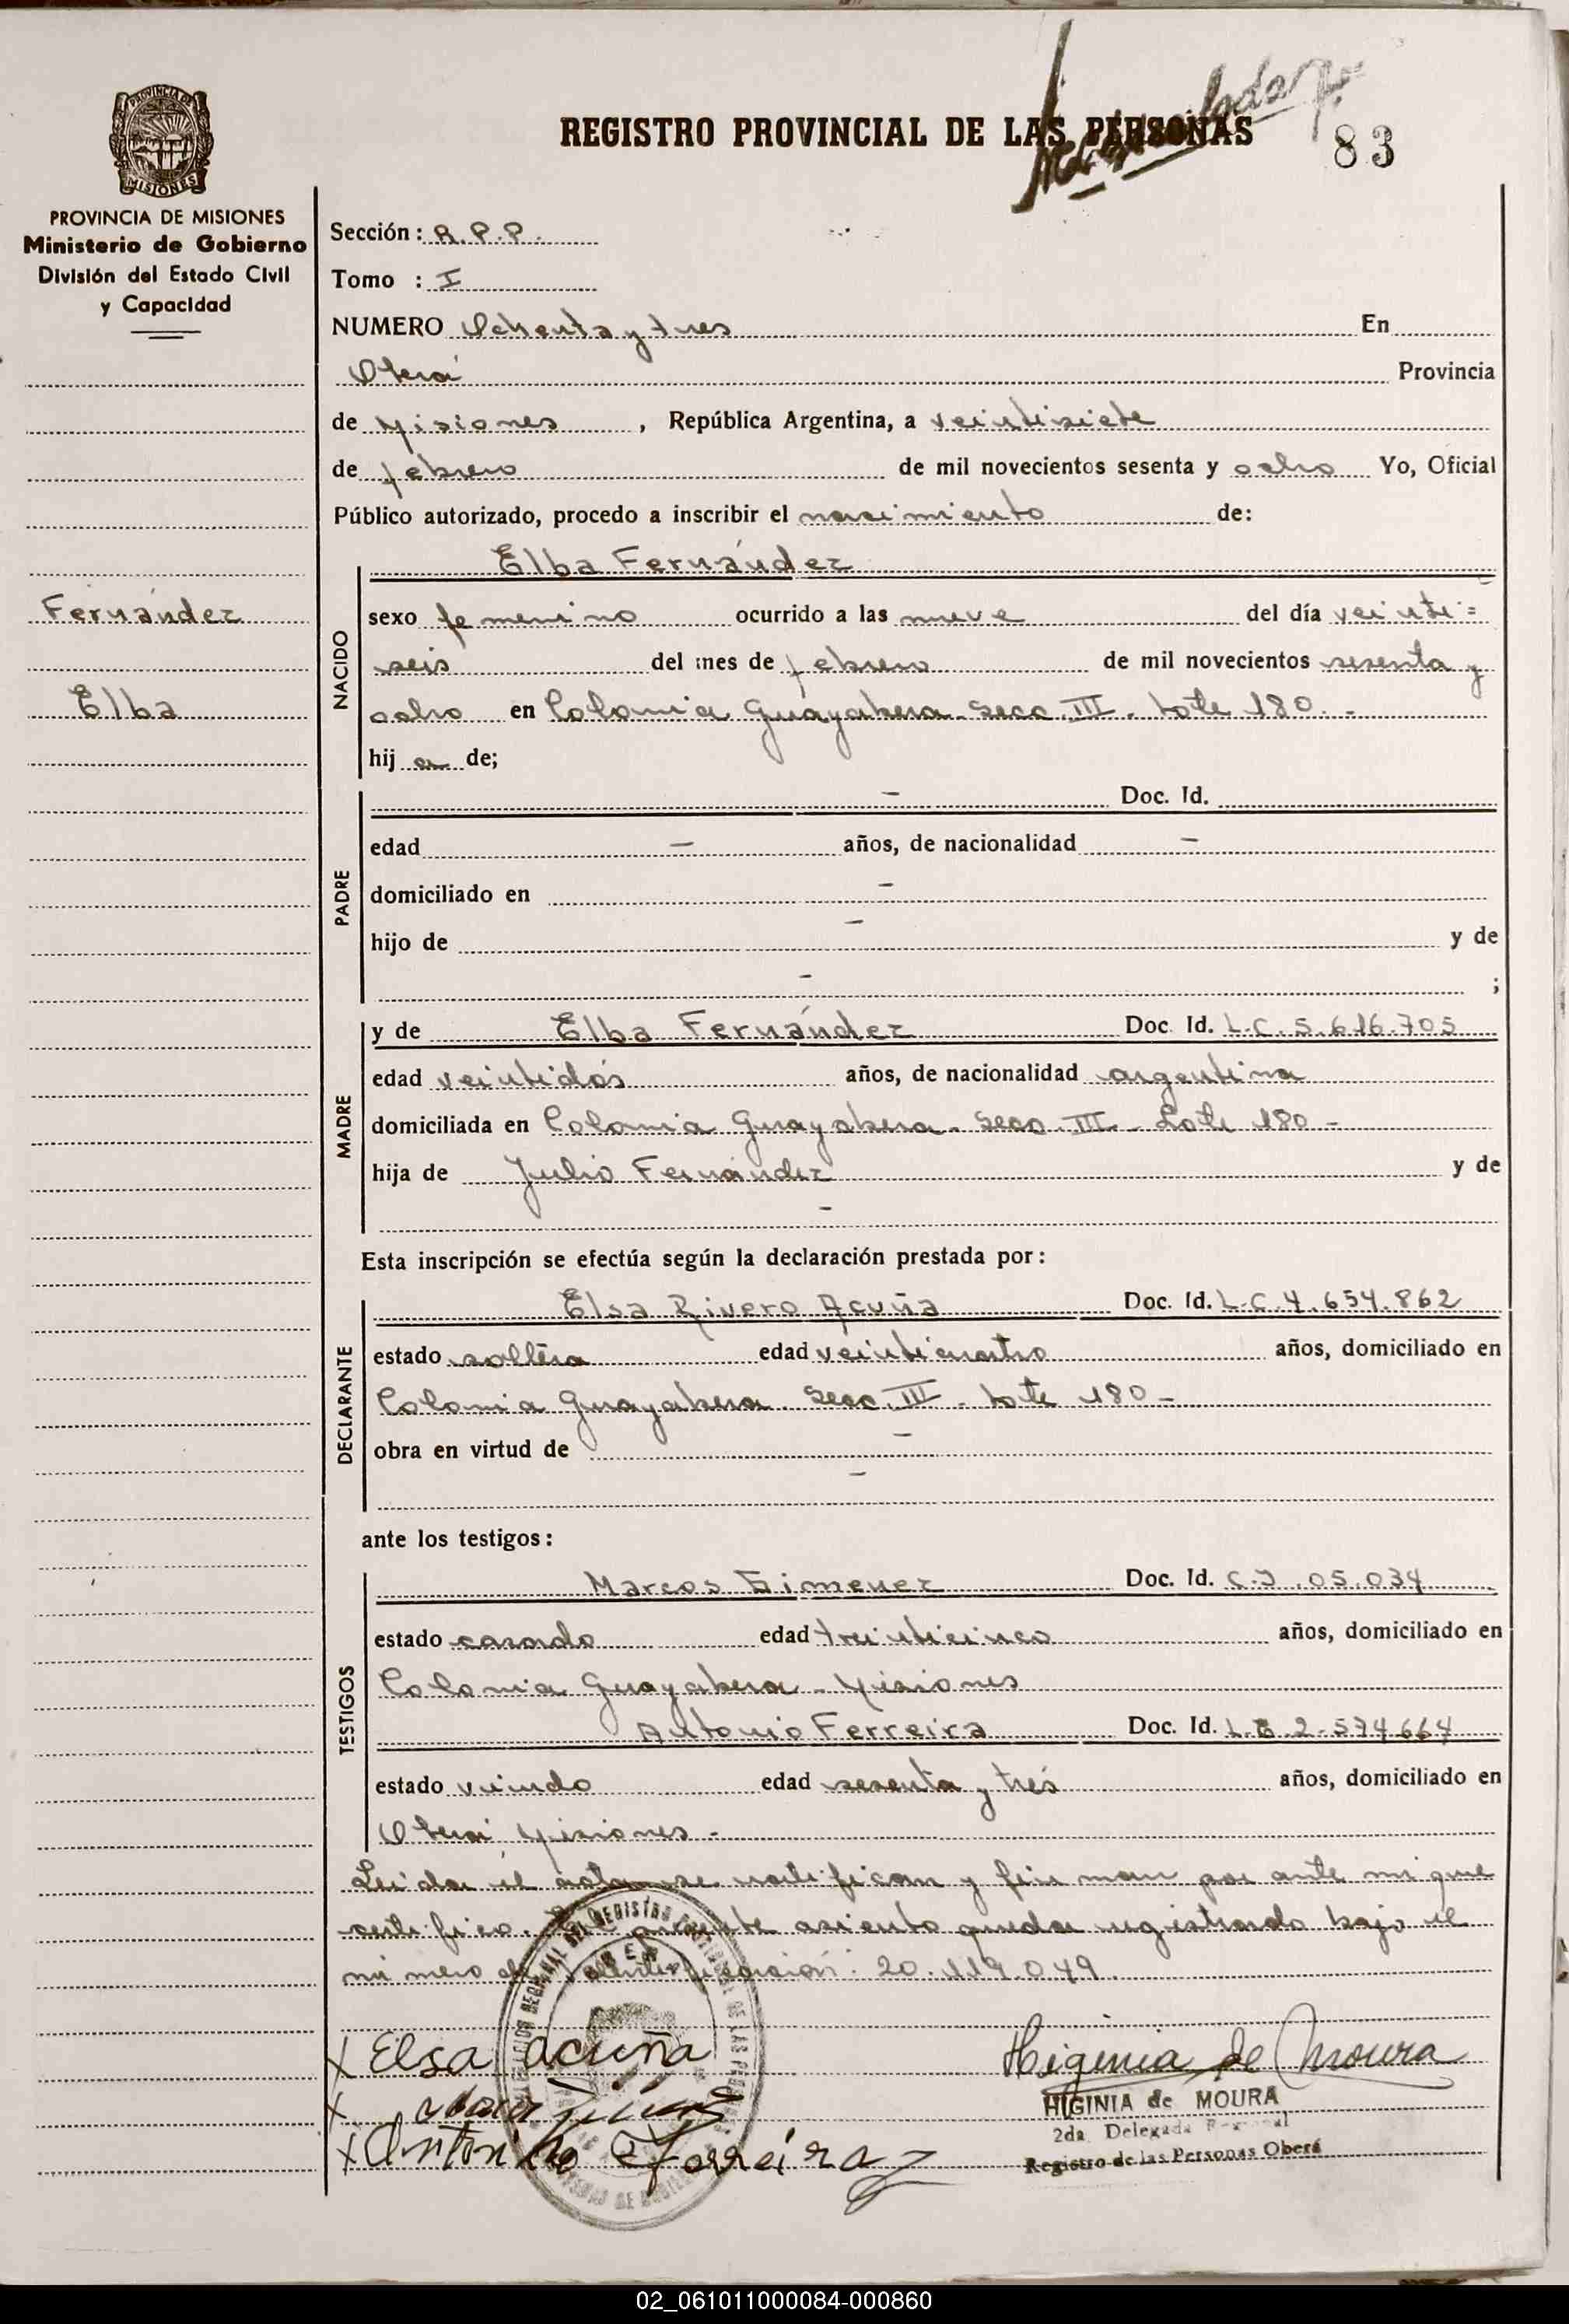 REGISTRO PROVINCIAL DE LAS PERSONAS
83
PROVINCIA DE MISIONES
Ministerio de Gobierno
División del Estado Civil
y Capacidad
Fernández
Elba
Sección: R.P.P.
Tomo : I
NUMERO Ochenta y tres En
Oberá Provincia
de Misiones, República Argentina, a veintisiete
de febrero de mil novecientos sesenta y ocho Yo, Oficial
Público autorizado, procedo a inscribir el nacimiento de:
NACIDO
Elba Fernández
sexo femenino ocurrido a las nueve del día veinti=
seis del mes de febrero de mil novecientos sesenta y
ocho en Colonia Guayabera. Secc. III. Lote 180.-
hija de;
PADRE
- Doc. Id.
edad - años, de nacionalidad -
domiciliado en -
hijo de - y de
- ;
MADRE
y de Elba Fernández Doc. Id. L.C. 5.616.705
edad veintidós años, de nacionalidad argentina
domiciliada en Colonia Guayabera. Secc. III. Lote 180-
hija de Julio Fernández y de
-
Esta inscripción se efectúa según la declaración prestada por:
DECLARANTE
Elsa Rivero Acuña Doc. Id. L.C. 4.654.862
estado soltera edad veinticuatro años, domiciliado en
Colonia Guayabera Secc. III. Lote 180-
obra en virtud de -
-
ante los testigos:
TESTIGOS
Marcos Gimenez Doc. Id. C.I. 05.034
estado casado edad treinticinco años, domiciliado en
Colonia Guayabera - Misiones
Antonio Ferreira Doc. Id. L.E. 2.574.664
estado viudo edad sesenta y trés años, domiciliado en
Oberá Misiones.-
Leida el acta se ratifican y firman por ante mi que
certifico. presente asiento queda registrado bajo el
número de identificación: 20.119.049.
x Elsa acuña
Higinia de Moura
x
HIGINIA de MOURA
x Antonino Ferreira
2da. Delegada
Registro de las Personas Oberá
02_061011000084-000860